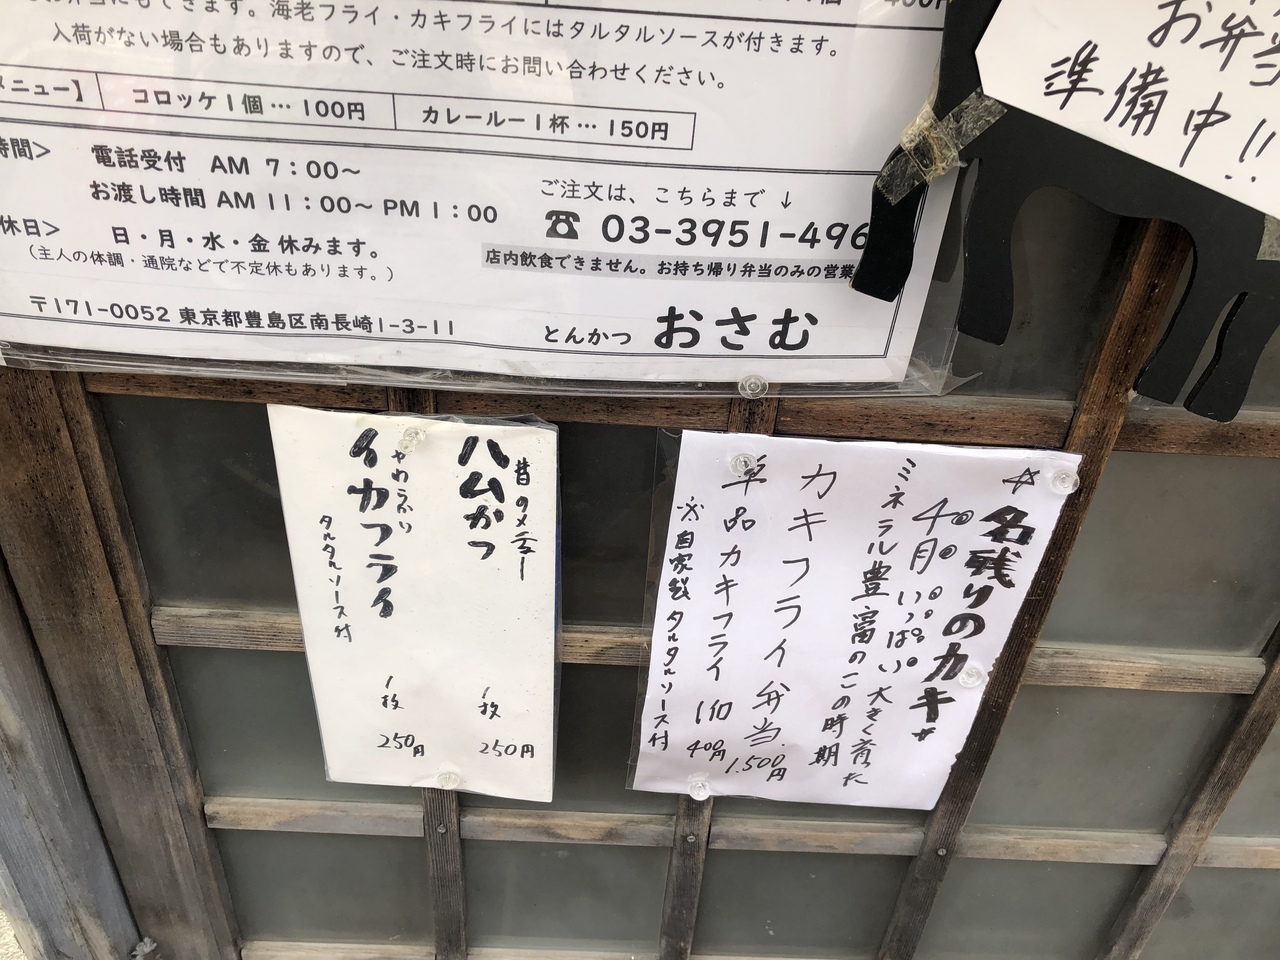 お弁当にもできます。海老フライ・カキフライにはタルタルソースが付きます。
入荷がない場合もありますので、ご注文時にお問い合わせください。
メニュー】
コロッケ1個…100円
カレールー1杯…150円
時間>
電話受付 AM 7:00〜
お渡し時間 AM 11:00〜 PM 1:00
休日>
日・月・水・金 休みます。
(主人の体調・通院などで不定休もあります。)
〒171-0052 東京都豊島区南長崎1-3-11
ご注文は、こちらまで ↓
☎ 03-3951-496
店内飲食できません。お持ち帰り弁当のみの営業
とんかつ おさむ
お弁当
準備中!!
昔のメニュー
ハムかつ 1枚 250円
やわらかい
イカフライ 1枚 250円
タルタルソース付
☆名残りのカキ〃
4月いっぱい
ミネラル豊富の
大きく育った
この時期
カキフライ弁当 1,500円
単品カキフライ 1個 400円
※自家製タルタルソース付